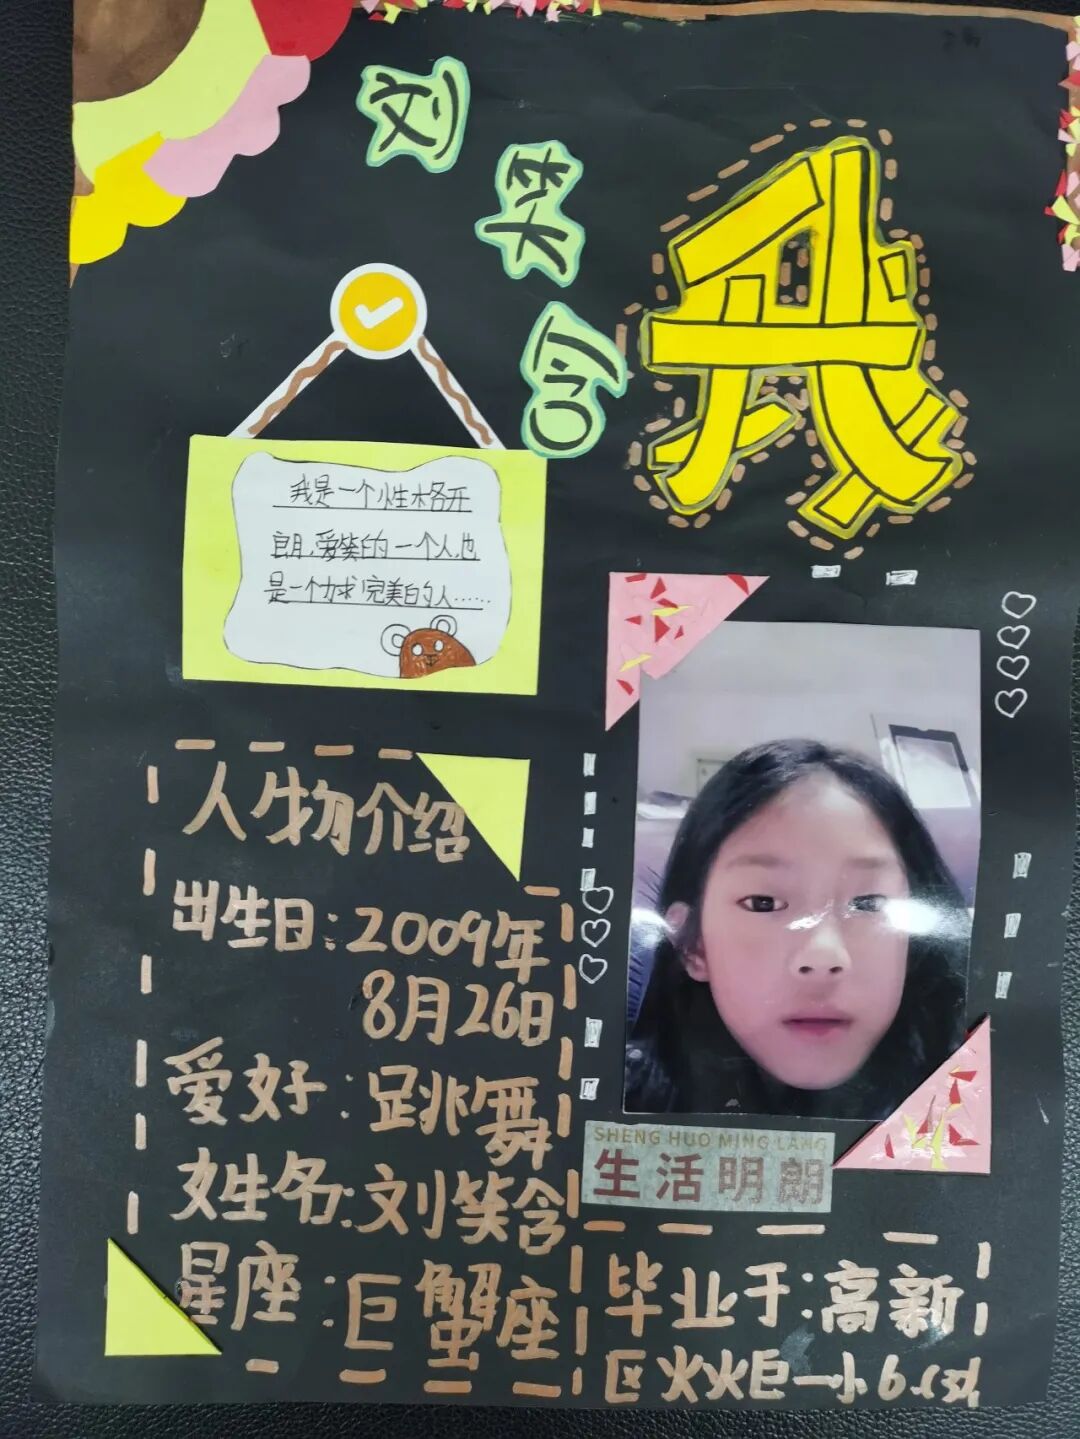 刘笑含
我是一个性格开
朗,爱笑的一个人,也
是一个力求完美的人……
人物介绍
出生日:2009年
8月26日
爱好:跳舞
姓名:刘笑含
星座:巨蟹座
SHENG HUO MING LANG
生活明朗
毕业于:高新
区火炬一小6.(3)